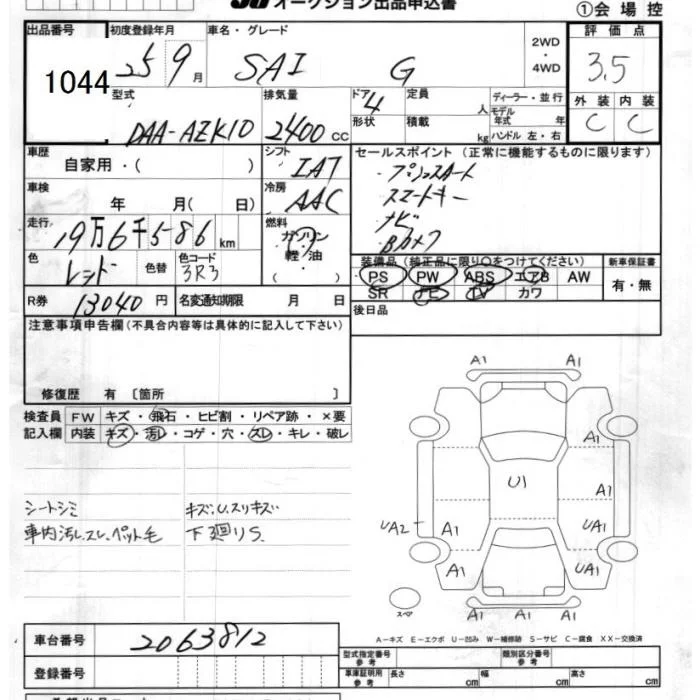 オークション出品申込書 ①会場控
出品番号 初度登録年月 車名・グレード 評価点
1044 25 9月 SAI G 2WD・4WD 3.5
型式 排気量 ドア 定員 人 ディーラー・並行 外装 内装
DAA-AZK10 2400cc 4 形状 積載 kg モデル年式 年 ハンドル 左・右 C C
車歴 自家用・( ) シフト IAT セールスポイント(正常に機能するものに限ります)
・プッシュスタート
車検 年 月( 日) 冷房 AAC ・スマートキー
・ナビ
走行 19万6千586km 燃料 ガソリン・軽油 ・Bカメラ
色 レッド 色替 色コード 3R3 装備品(純正品に限り○をつけてください) 新車保証書
PS PW ABS エアB AW 有・無
SR ナビ TV カワ
R券 13040円 名変通知期限 月 日 後日品
注意事項申告欄(不具合内容等は具体的に記入して下さい)
修復歴 有 [箇所 ]
検査員 FW キズ・飛石・ヒビ割・リペア跡・×要
記入欄 内装 キズ・汚レ・コゲ・穴・スレ・キレ・破レ
シートシミ キズ.U.スリキズ
車内汚レ.スレ.ペット毛 下廻りS.
A1 A1
A1
U1 A1
UA2 A1 UA1
A1 UA1
スペア A1 A1 A1
A−キズ E−エクボ U−凹み W−補修跡 S−サビ C−腐食 XX−交換済
車台番号 2063812
型式指定番号 参考 類別区分番号 参考
登録番号 車庫証明用 参考 長さ cm 幅 cm 高さ cm